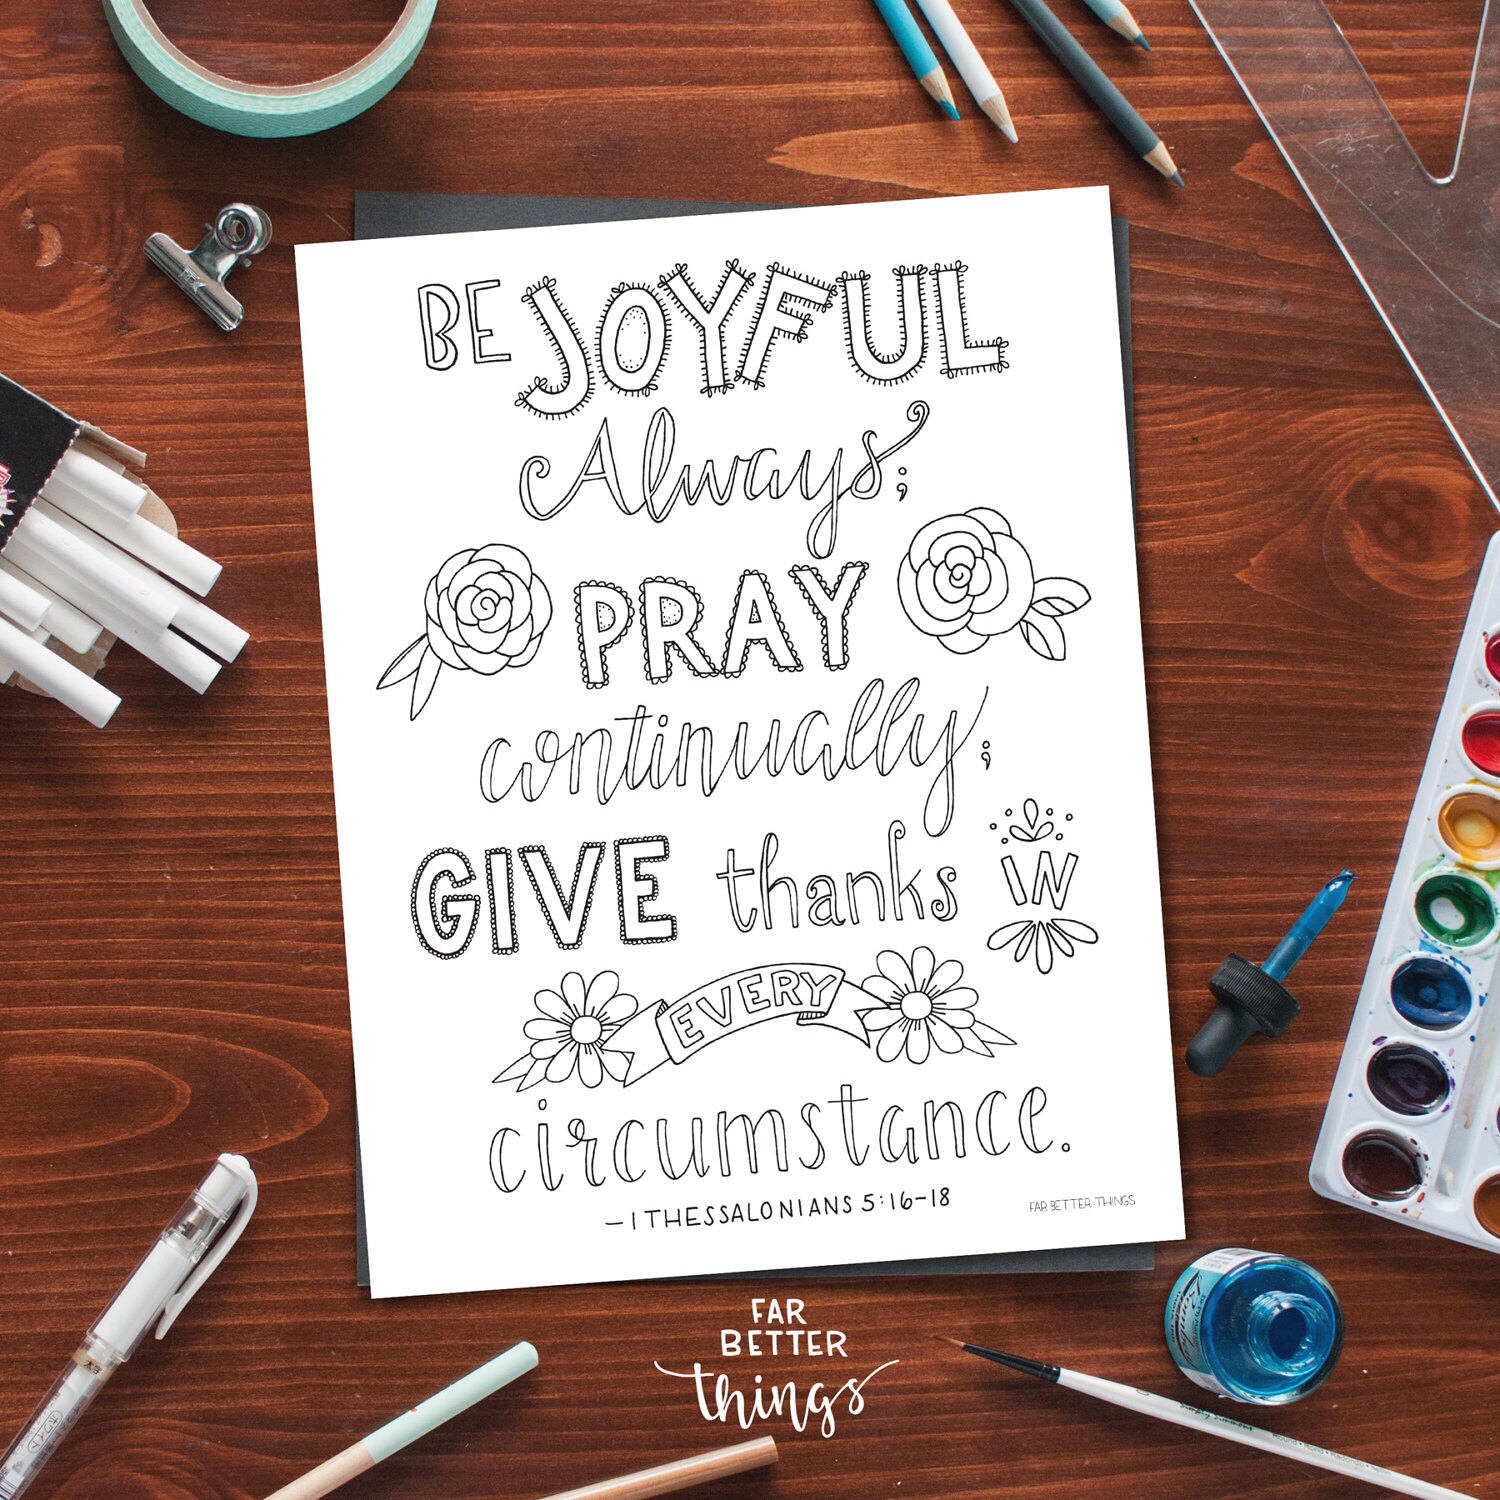 BE JOYFUL
Always;
PRAY
continually;
GIVE thanks IN
EVERY
circumstance.
—1 THESSALONIANS 5:16-18
FAR BETTER THINGS
FAR
BETTER
things